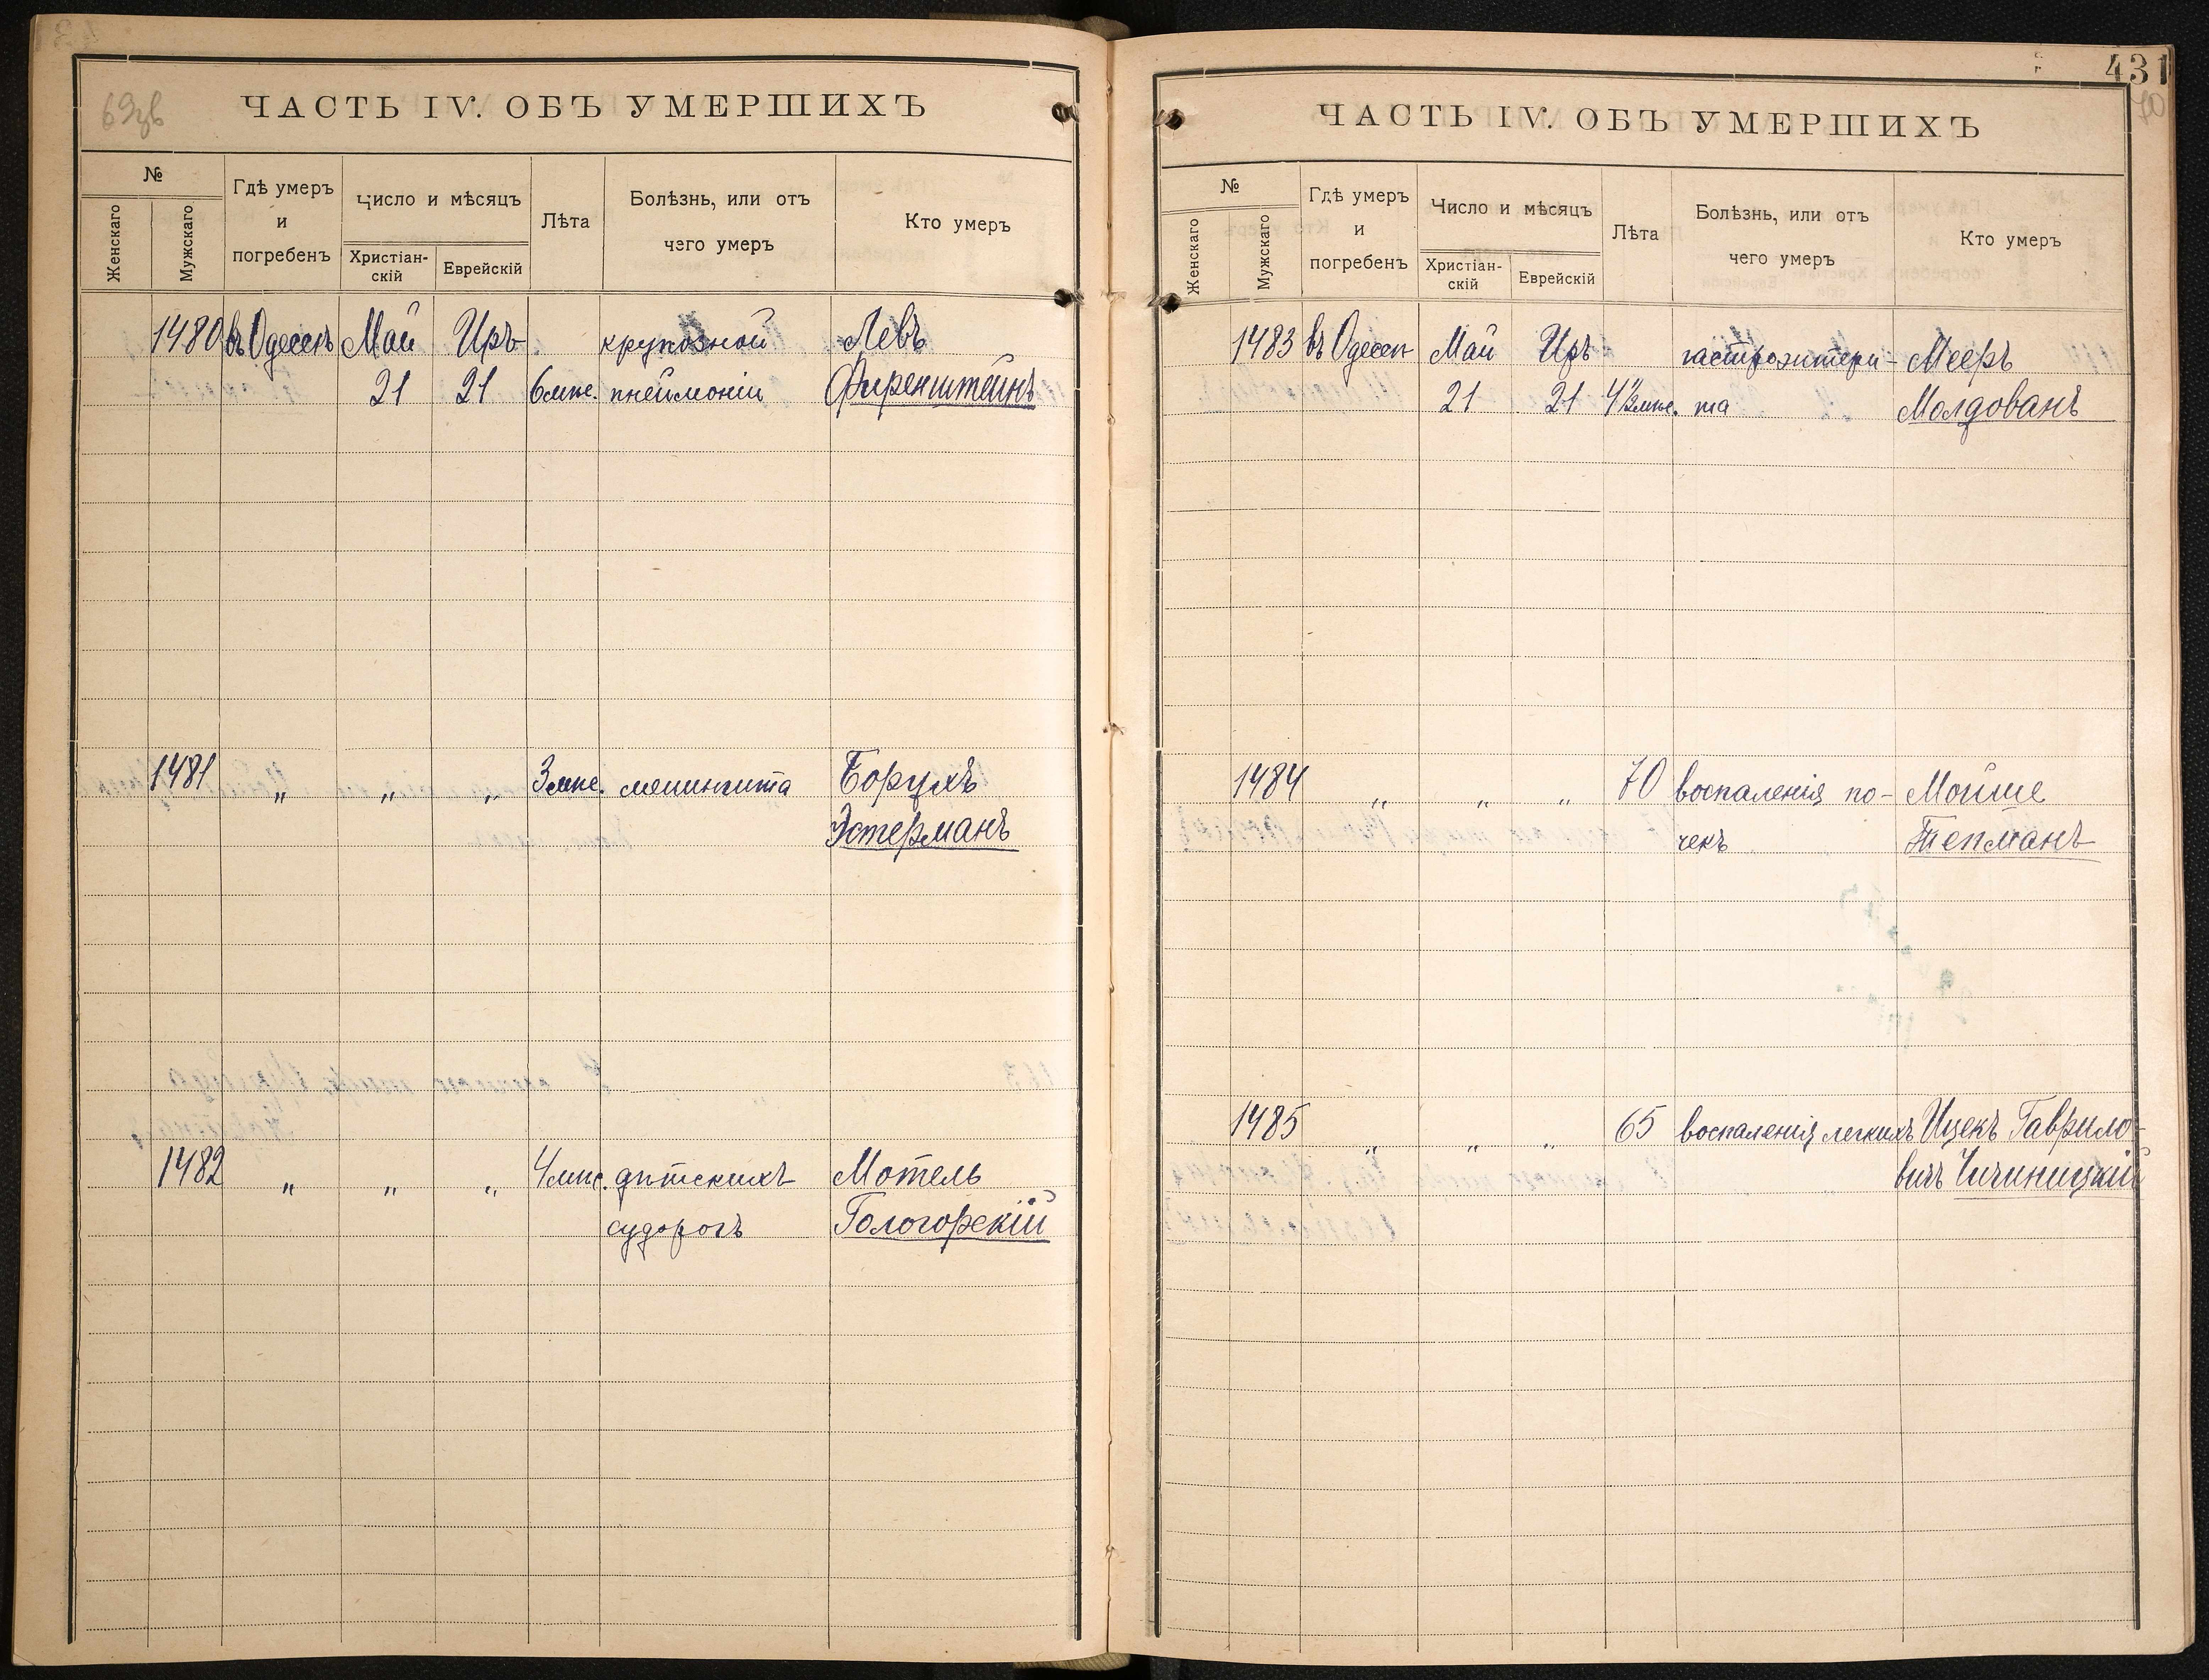 69 зв
ЧАСТЬ IV. ОБЪ УМЕРШИХЪ
№
Женскаго
Мужскаго
Гдѣ умеръ и погребенъ
Число и мѣсяцъ
Христіан-
скій
Еврейскій
Лѣта
Болѣзнь, или отъ
чего умеръ
Кто умеръ
1480 въ Одессѣ Май Иръ крупозной Левъ
21 21 6 мѣс. пнеймоніи Фиренштейнъ
1481 „ „ „ 3 мѣс. менингита Борухъ
Эстерманъ
1482 „ „ „ 4 мѣс. дѣтскихъ Мотель
судорогъ Гологорскій
431
70
ЧАСТЬ IV. ОБЪ УМЕРШИХЪ
№
Женскаго
Мужскаго
Гдѣ умеръ
и
погребенъ
Число и мѣсяцъ
Христіан-
скій
Еврейскій
Лѣта
Болѣзнь, или отъ
чего умеръ
Кто умеръ
1483 въ Одессѣ Май Иръ гастроэнтери- Мееръ
21 21 4½ мѣс. та Молдованъ
1484 „ „ „ 70 воспаленія по- Мойше
чекъ Тепманъ
1485 „ „ „ 65 воспаленія легкихъ Ицекъ Гаврило-
вичъ Чичиницкій